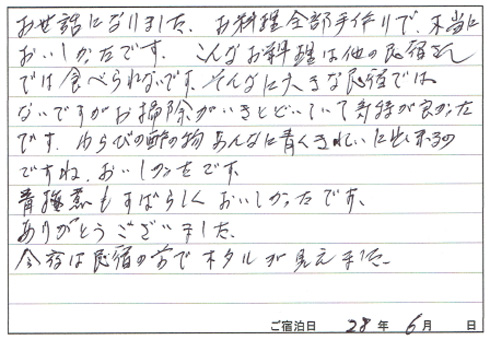 お世話になりました、お料理全部手作りで、本当に
おいしかたです。こんなお料理は他の民宿さん
では食べられないです。そんなに大きな民宿では
ないですがお掃除がいきとどいていて気持が良かた
です。わらびの酢の物あんなに青くきれいに出来るの
ですね、おいしかたです。
青梅煮もすばらしくおいしかたです、
ありがとうございました、
今夜は民宿の前でホタルが見えました。
ご宿泊日 28年 6月 日